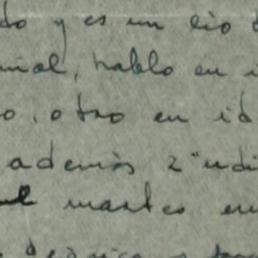 do y es un lio
ñol, hablo en i
o, otro en id
además 2 "indi
el martes en
dédica